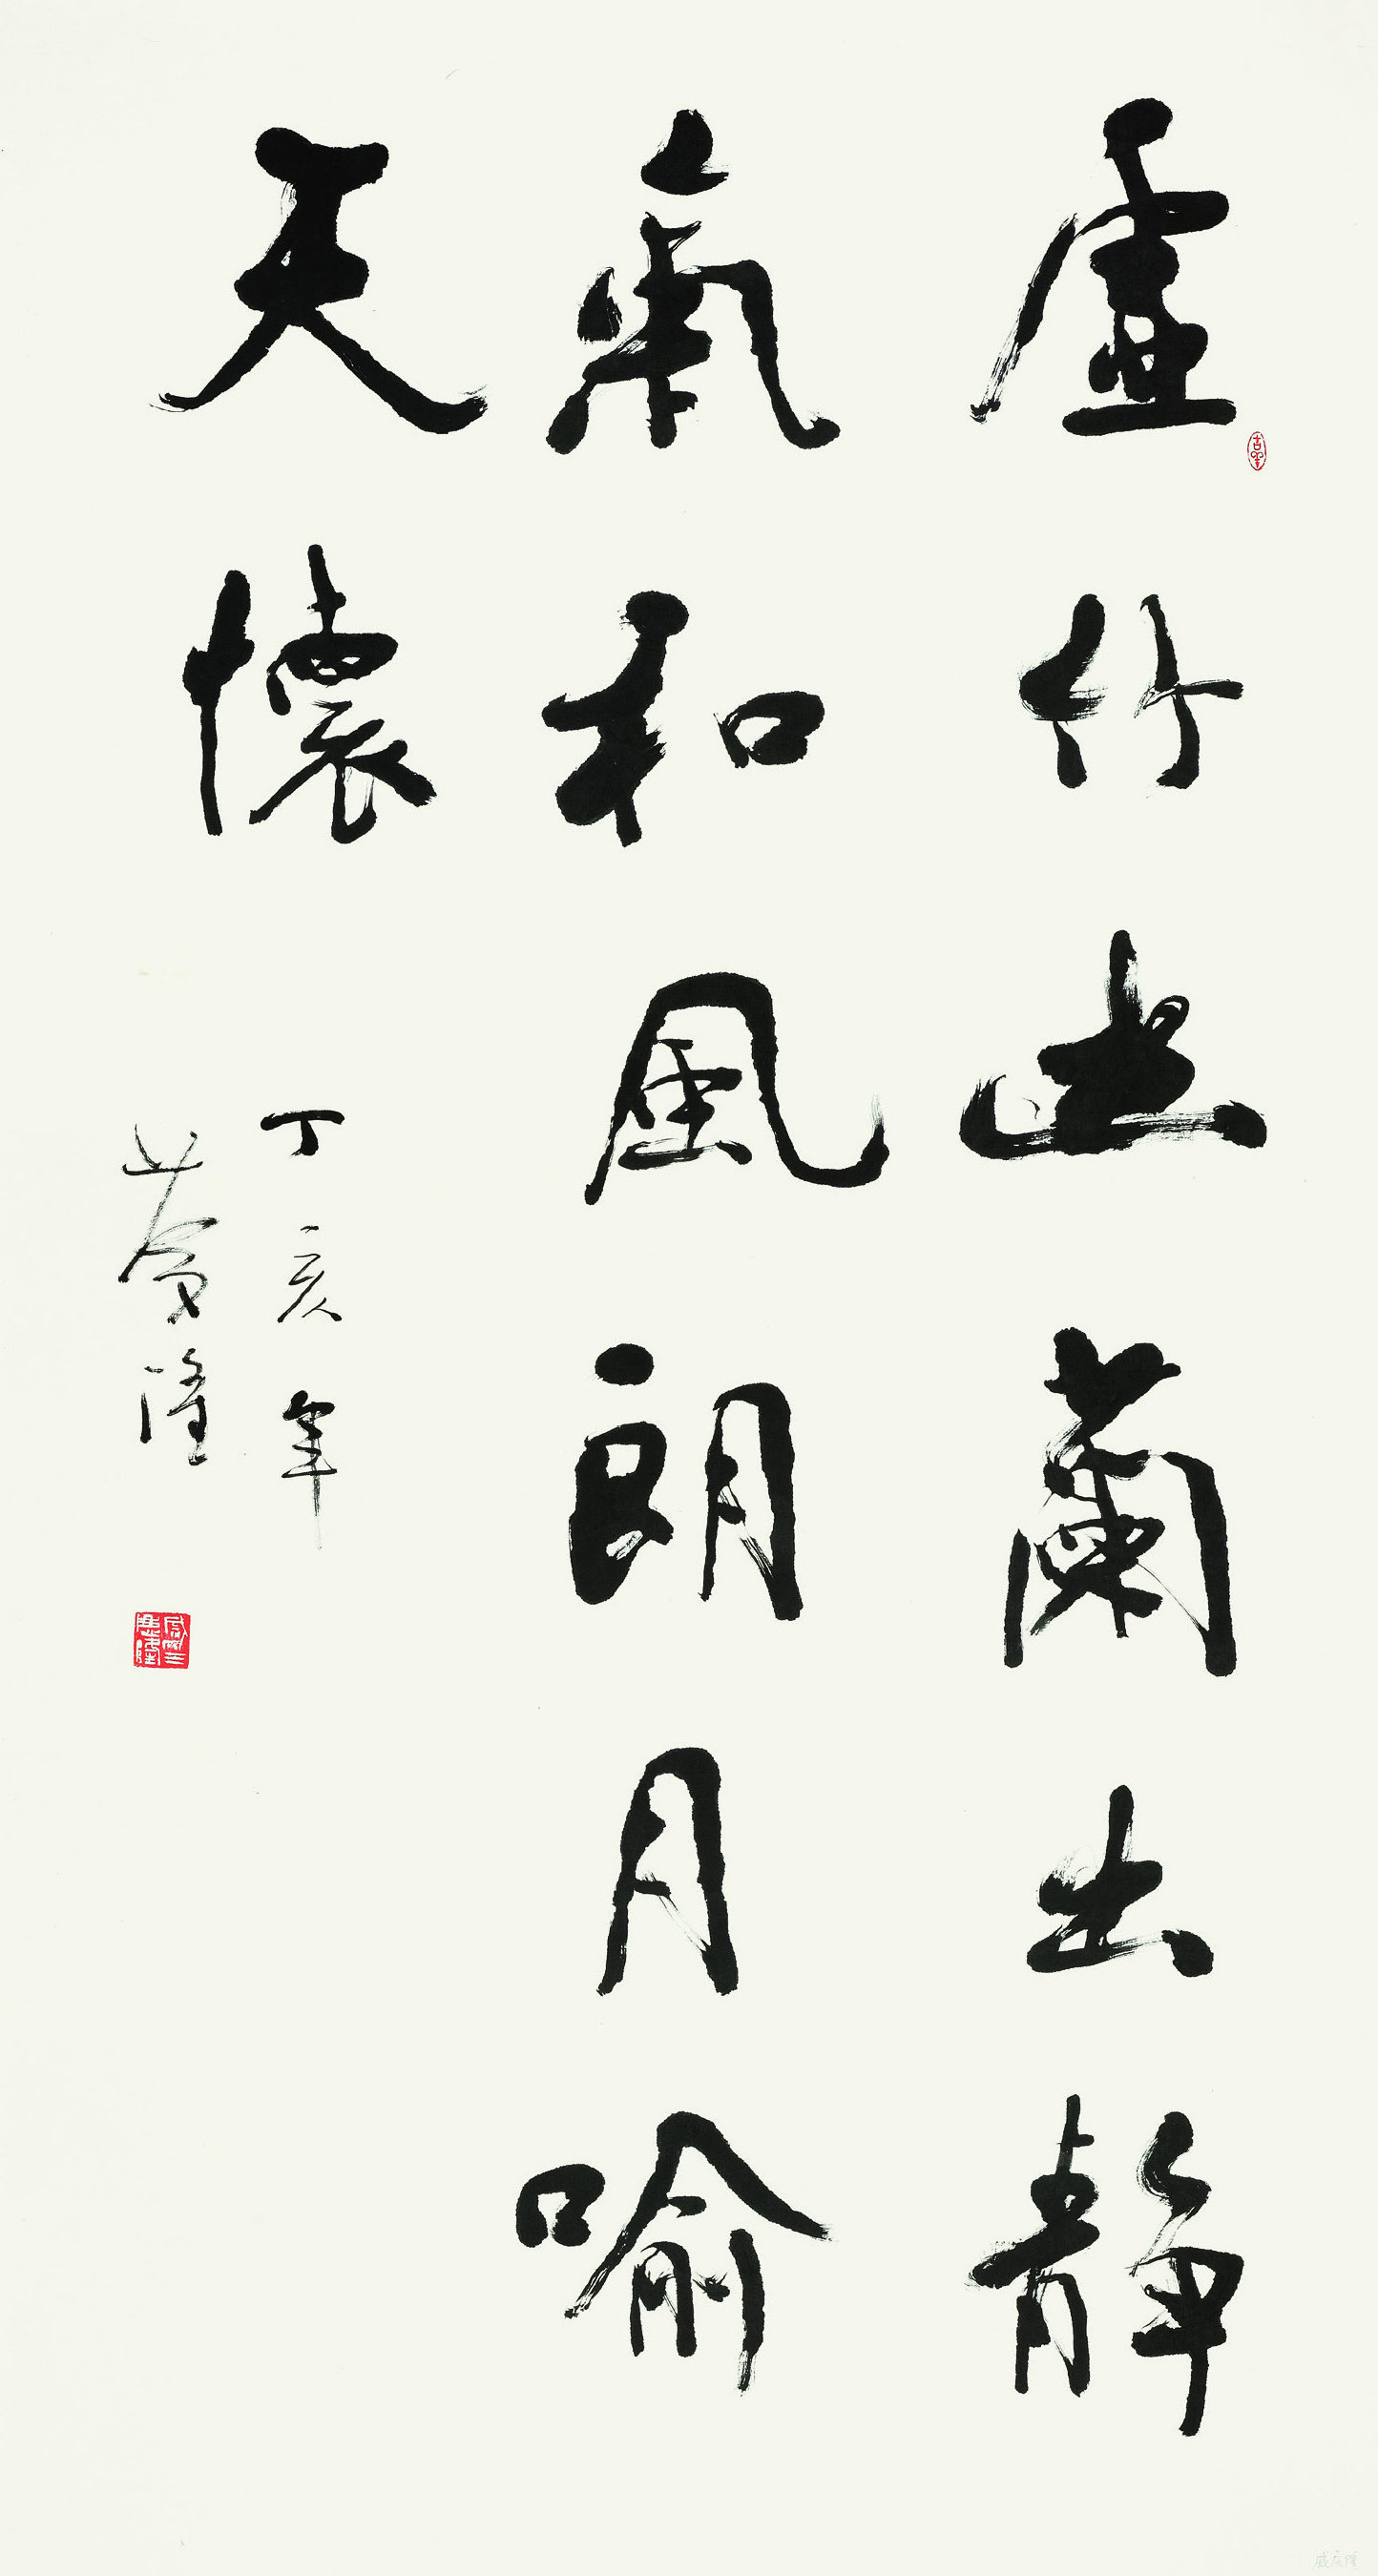 虛竹幽蘭出靜
氣和風朗月喻
天懷
丁亥年
慶隆
戚慶隆